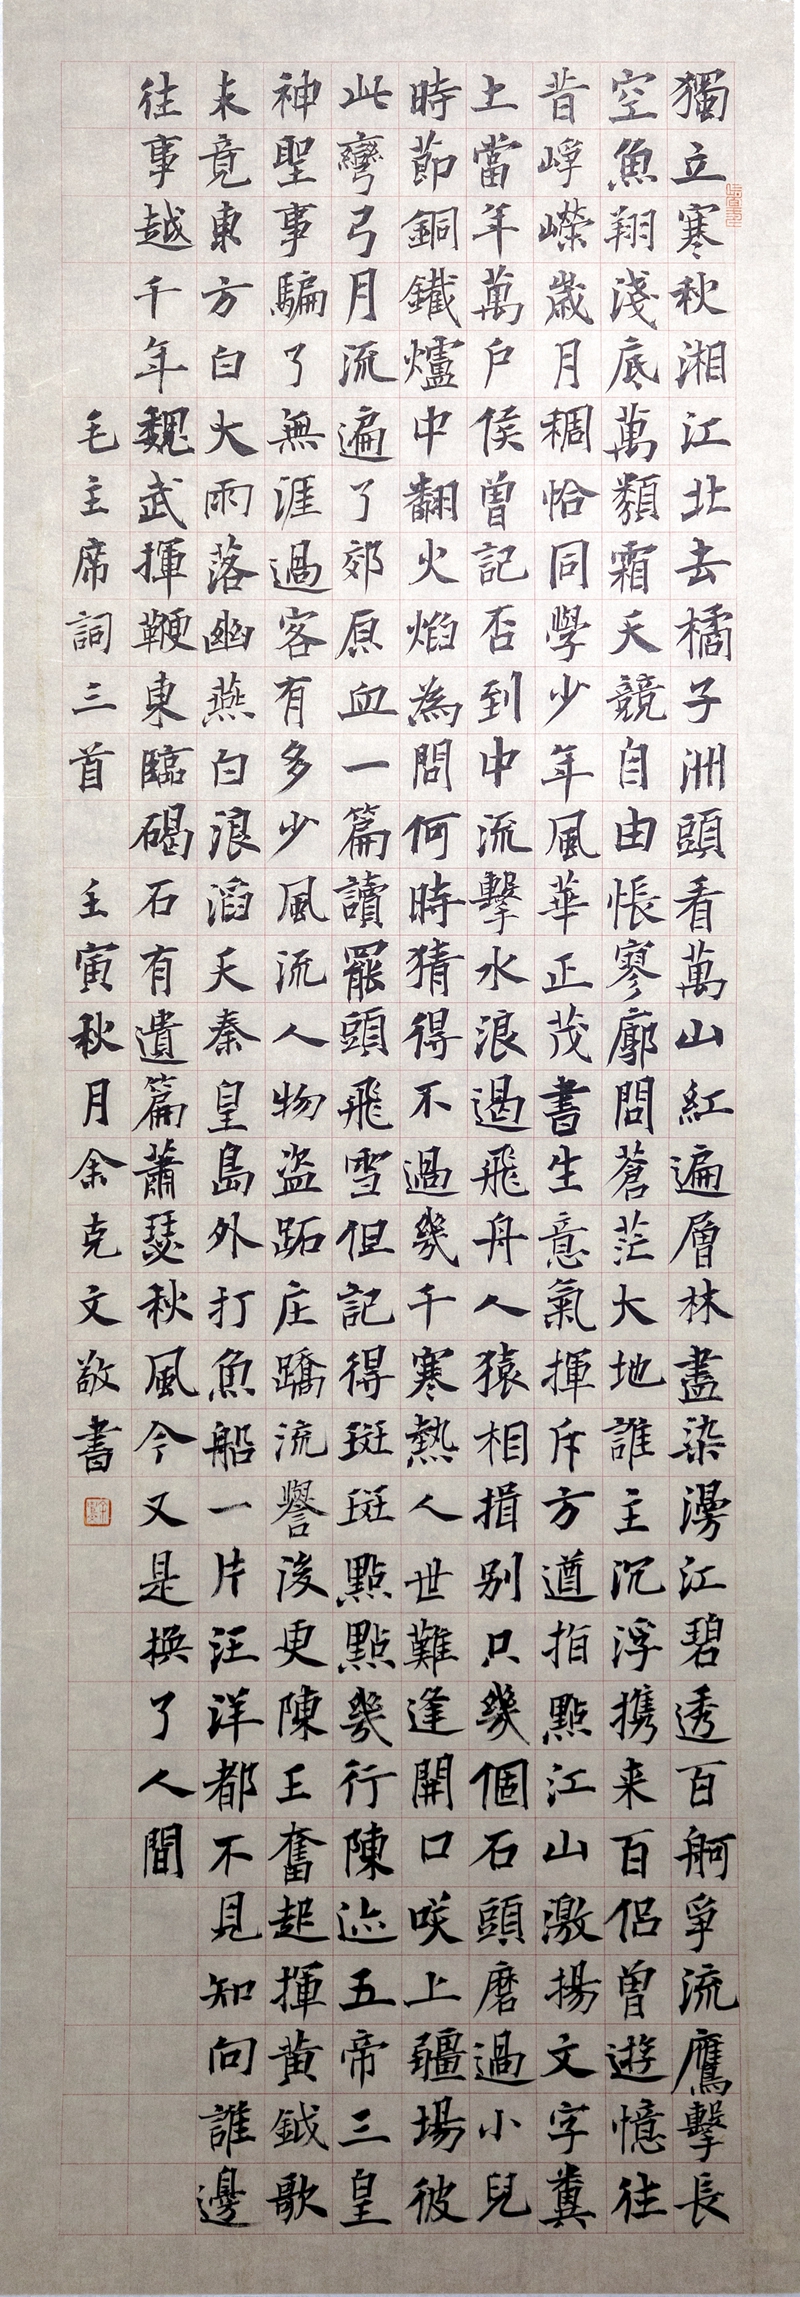 獨立寒秋湘江北去橘子洲頭看萬山紅遍層林盡染漫江碧透百舸爭流鷹擊長
空魚翔淺底萬類霜天競自由悵寥廓問蒼茫大地誰主沉浮携来百侣曾遊憶往
昔崢嶸歲月稠恰同學少年風華正茂書生意氣揮斥方遒指點江山激揚文字糞
土當年萬户侯曾記否到中流擊水浪遏飛舟人猿相揖别只幾個石頭磨過小兒
時節銅鐵爐中翻火焰為問何時猜得不過幾千寒熱人世難逢開口咲上疆場彼
此彎弓月流遍了郊原血一篇讀罷頭飛雪但記得斑斑點點幾行陳迹五帝三皇
神聖事騙了無涯過客有多少風流人物盜跖庄蹻流譽後更陳王奮起揮黄鉞歌
未竟東方白大雨落幽燕白浪滔天秦皇島外打魚船一片汪洋都不見知向誰邊
往事越千年魏武揮鞭東臨碣石有遺篇蕭瑟秋風今又是换了人間
毛主席詞三首 壬寅秋月余克文敬書